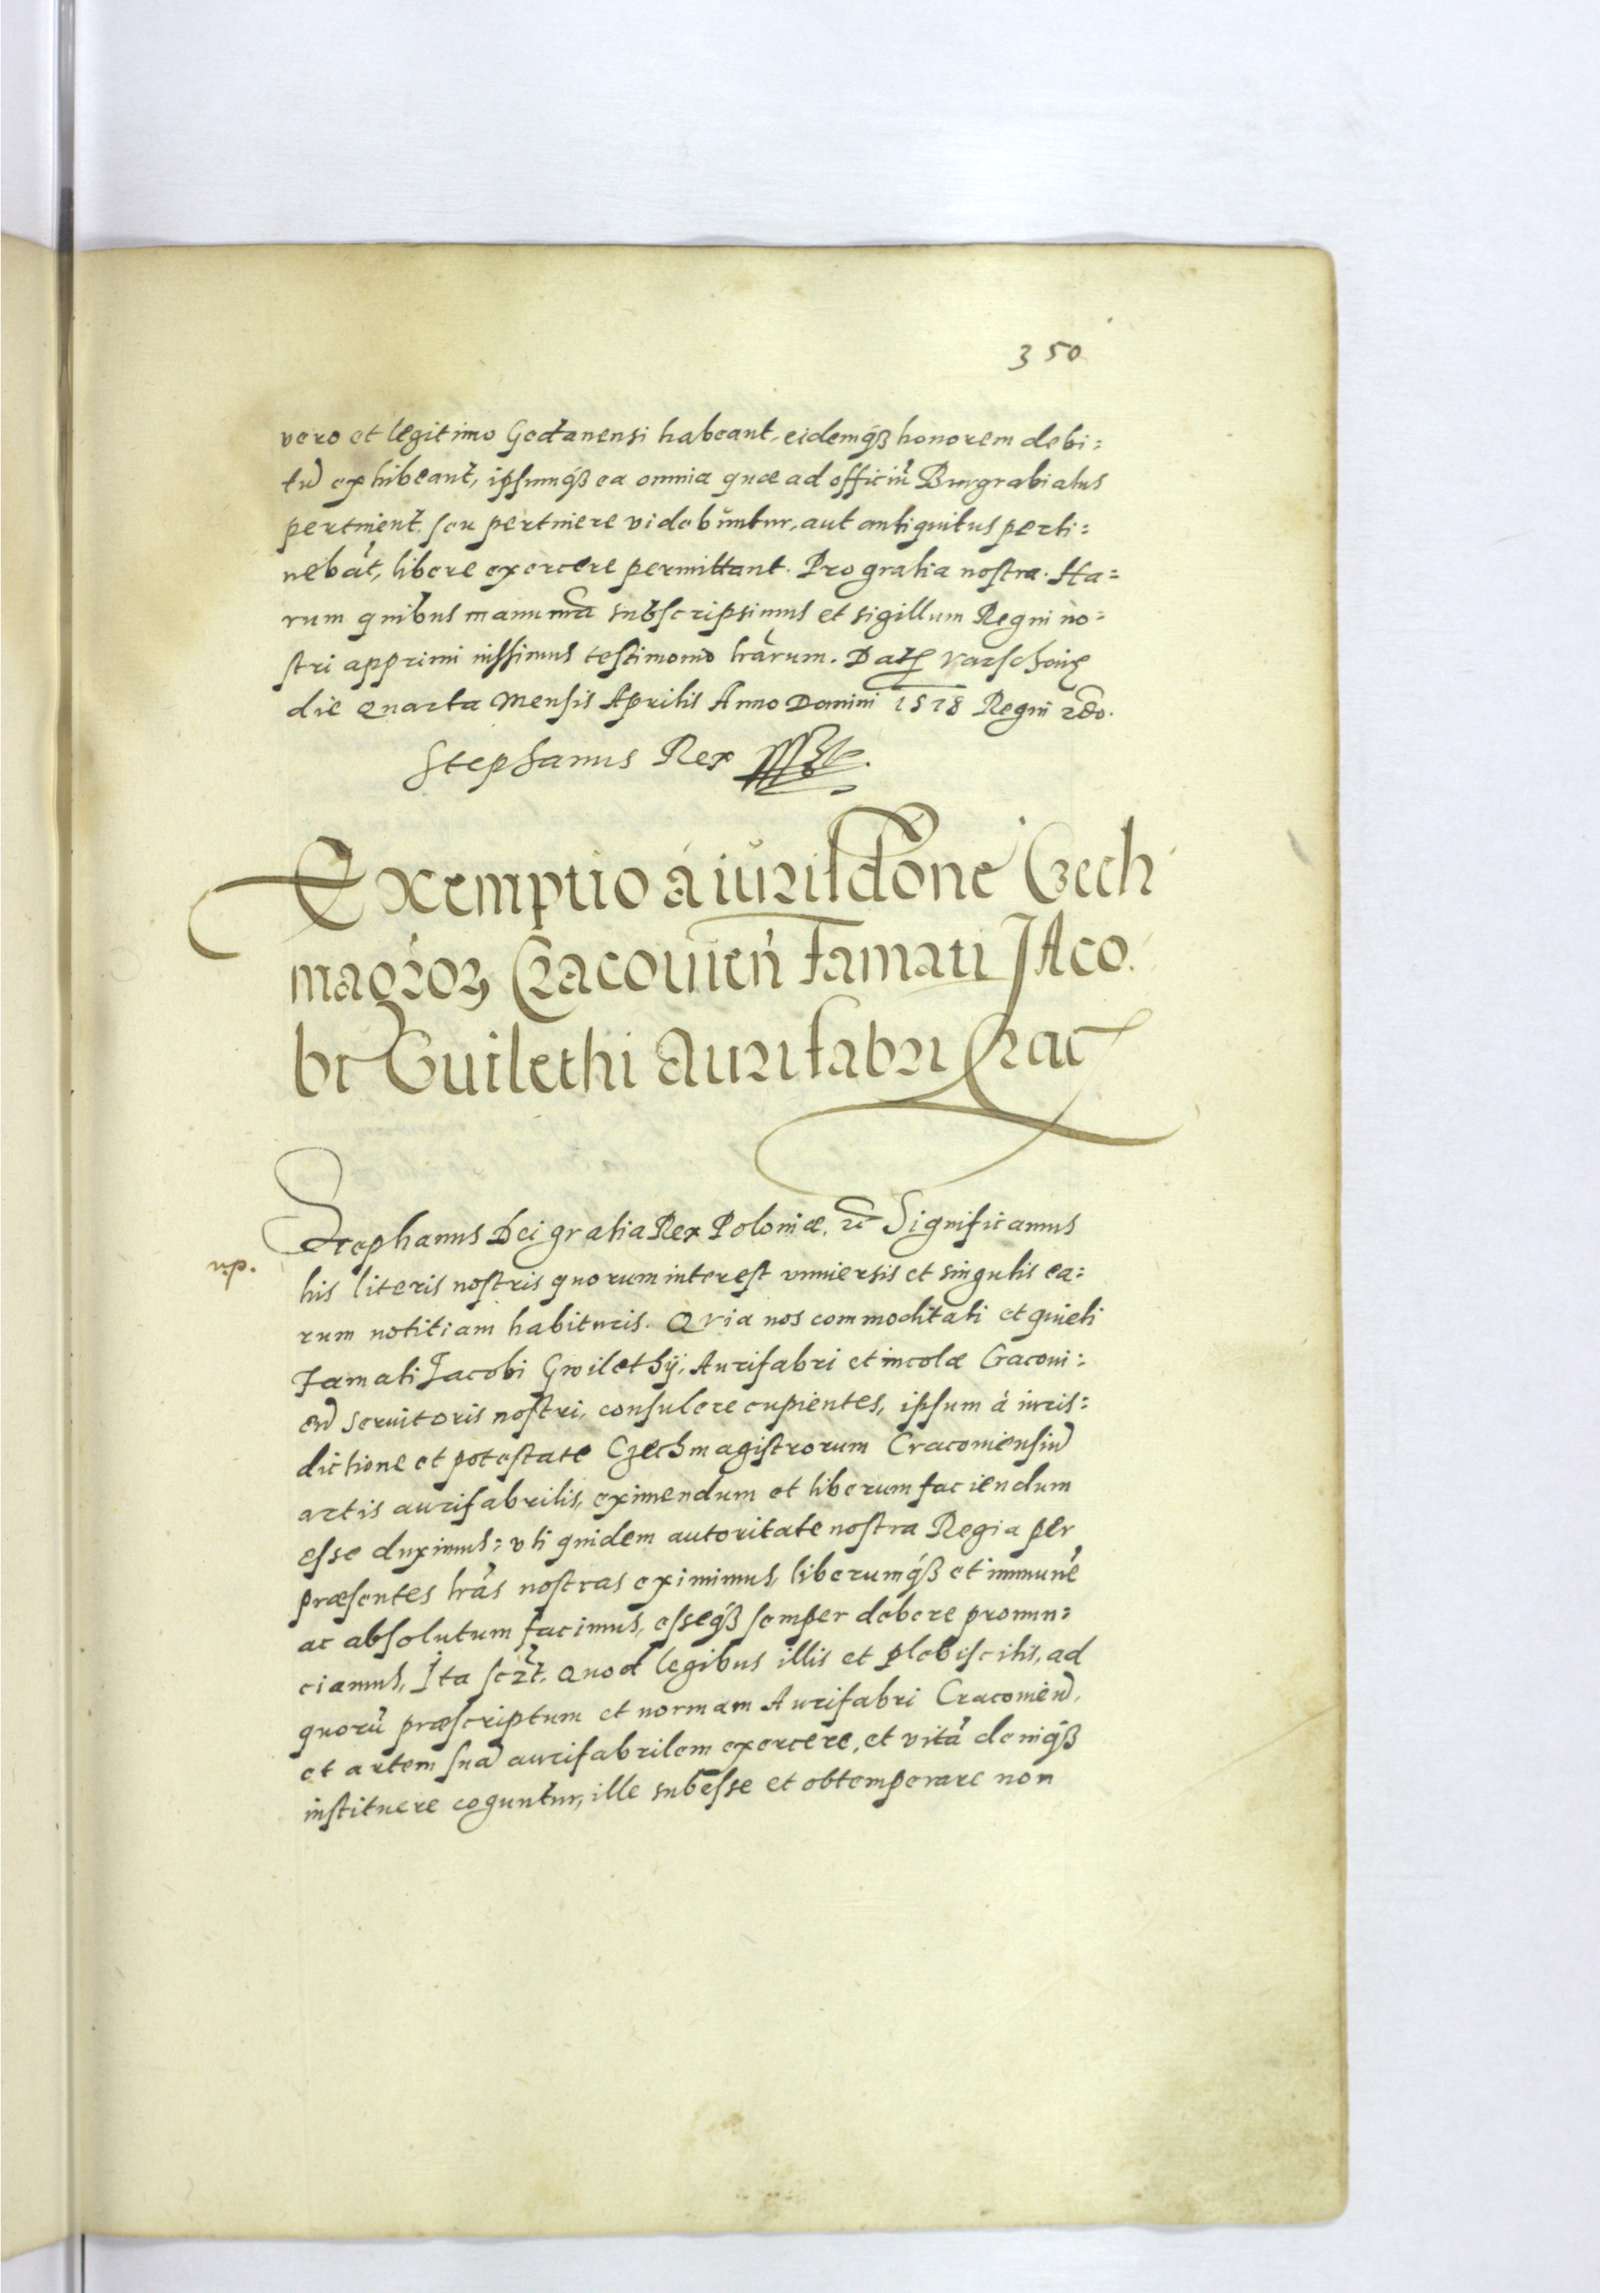 350
vero et legitimo Gedanensi habeant, eidemq́ꝫ honorem debi:
tũ exhibeant, ipsumq́ꝫ ea omnia quæ ad officiũ Burgrabiatus
pertinent seu pertinere videbuntur, aut antiquitus perti:
nebãt, libere exercere permittant. Pro gratia nostra. Ha=
rum quibus manu nrã subscripsimus et sigillum Regni no:
stri apprimi iussimus testimonio lrãrum. Datę Varschoię
die Quarta Mensis Aprilis Anno Domini 1578 Regni 2do.
Stephanus Rex
Exemptio à iurisdõne Czech
magrõꝝ Cracovieñ famati JAco.
bi Guilethi Aurifabri Crac
Stephanus Dei gratia Rex Poloniæ. etc̃ Significamus
his literis nostris quorum interest vniuersis et singulis ea:
rum notitiam habituris. Qvia nos commoditati et quieti
Famati Jacobi Gwilethÿ, Aurifabri et incolæ Cracoui:
eñ seruitoris nostri, consulere cupientes, ipsum à iuris:
dictione et potestate Czechmagistrorum Cracouiensiũ
artis aurifabrilis, eximendum et liberum faciendum
esse duximus: vti quidem autoritate nostra Regia per
præsentes lrãs nostras eximimus, liberumq́ꝫ et immunẽ
ac absolutum facimus, esseq́ꝫ semper debere pronun:
ciamus, Ita sczt̃. Quod legibus illis et plebiscitis, ad
quorũ præscriptum et normam Aurifabri Cracouieñ,
et artem suã aurifabrilem exercere, et vitã deniq́ꝫ
instituere coguntur, ille subesse et obtemperare non